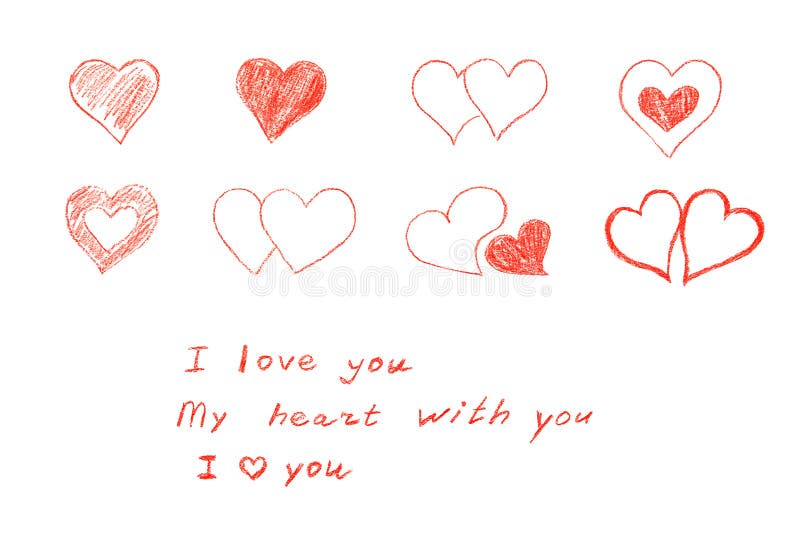 dreamstime
I love you
My heart with you
I ♡ you